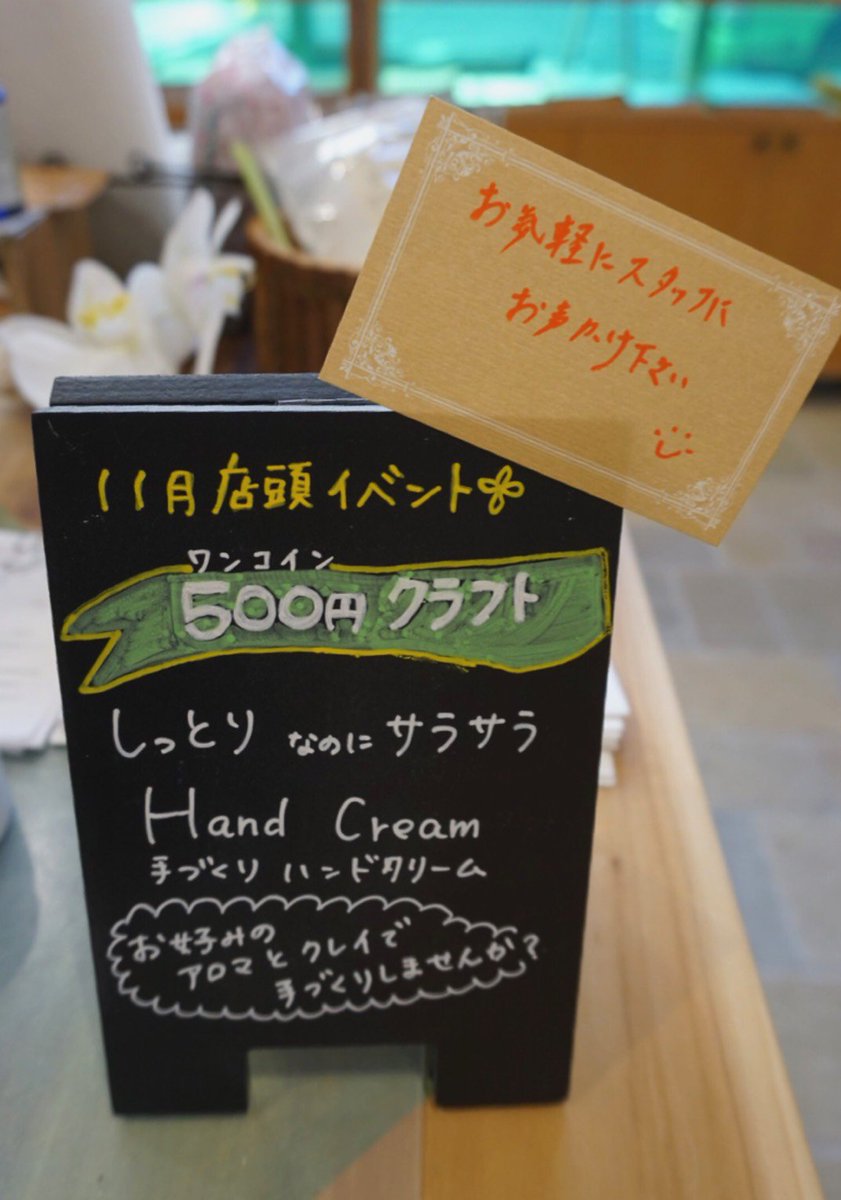 お気軽にスタッフに
お声かけ下さい
11月店頭イベント
ワンコイン
500円 クラフト
しっとり なのに サラサラ
Hand Cream
手づくり ハンドクリーム
お好みの
アロマとクレイで
手づくりしませんか?